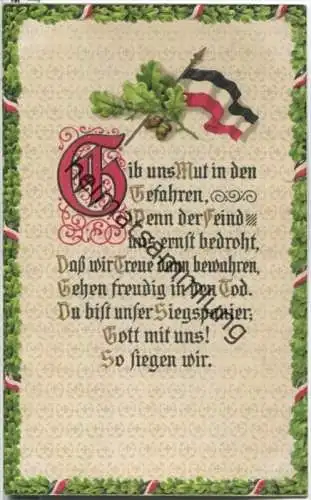 Gib uns Mut in den
Gefahren,
Wenn der Feind
uns ernst bedroht,
Daß wir Treue dann bewahren,
Gehen freudig in den Tod.
Du bist unser Siegspanier;
Gott mit uns!
So siegen wir.
heimatsammlung